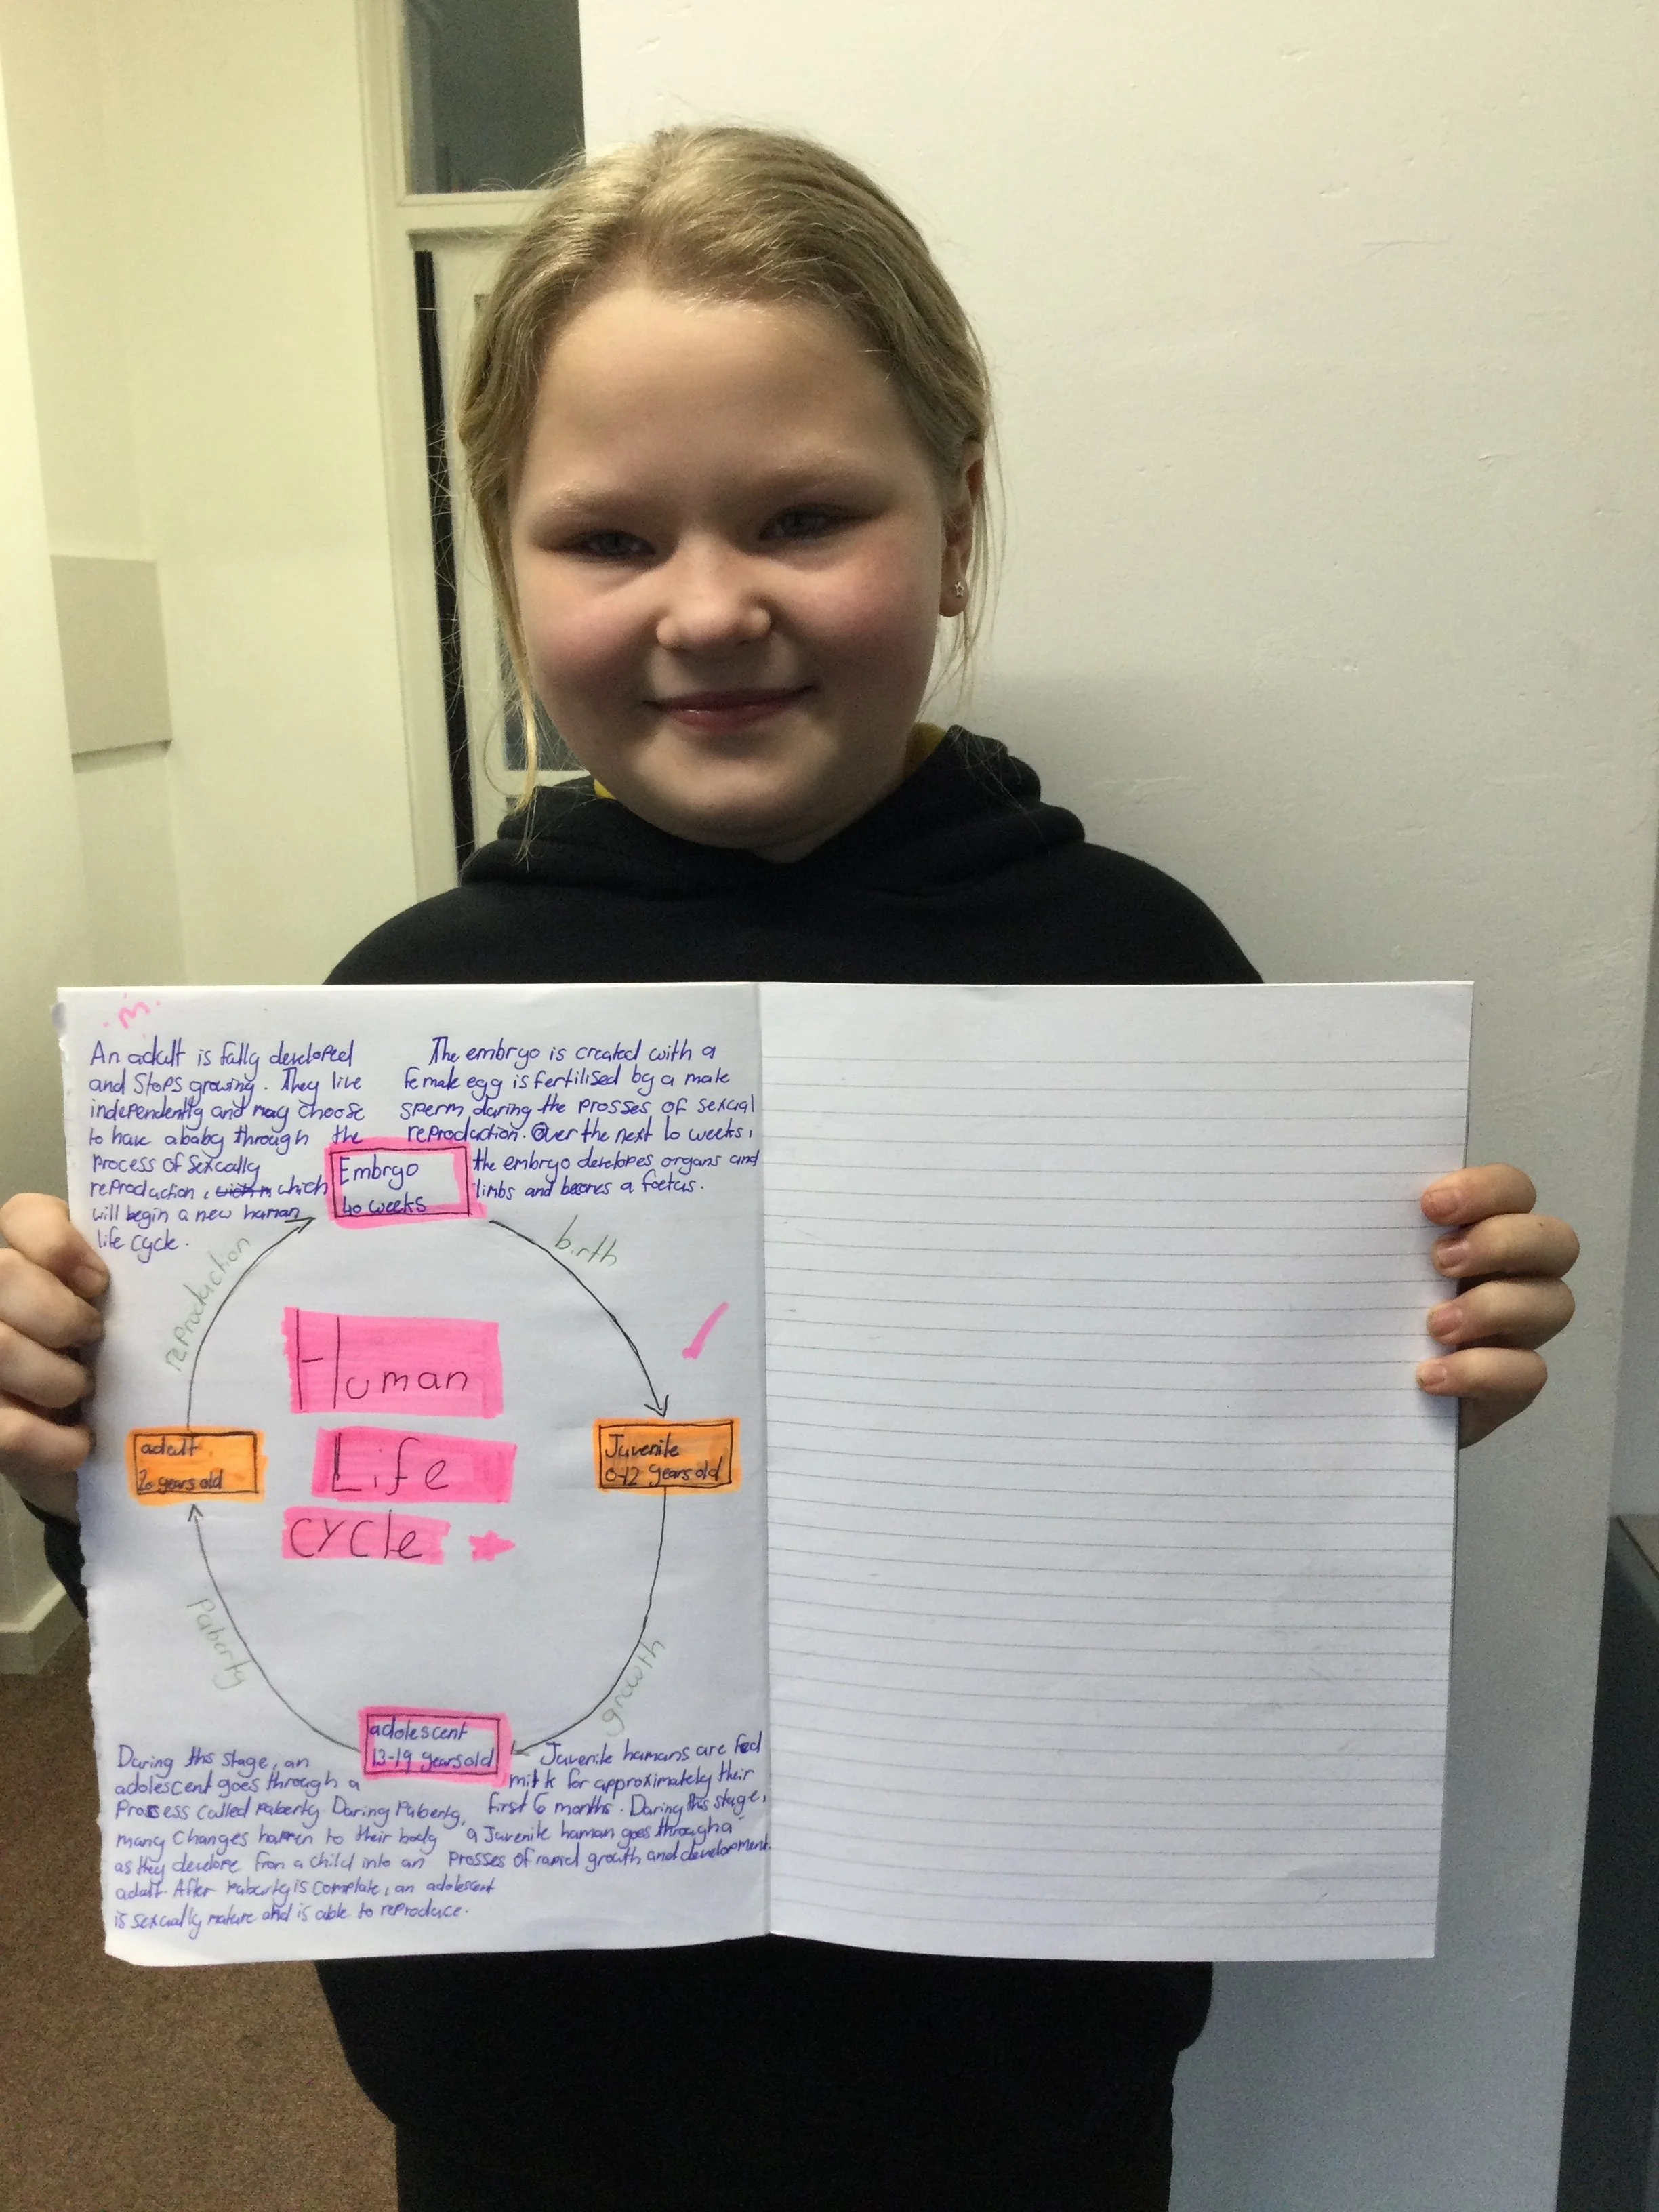 An adult is fully developed
and Stops growing. They live
independently and may choose
to have a baby through the
process of sexually
reproduction, which
will begin a new human
life cycle.
The embryo is created with a
female egg is fertilised by a male
sperm during the prosses of sexual
reproduction. Over the next 10 weeks,
the embryo developes organs and
limbs and becomes a foetus.
Embryo
40 weeks
birth
reproduction
Human
Life
cycle
adult
20 years old
Juvenile
0-12 years old
Puberty
growth
adolescent
13-19 years old
During this stage, an
adolescent goes through a
Process called puberty. During Puberty,
many changes happen to their body
as they develope from a child into an
adult. After puberty is complate, an adolescent
is sexually mature and is able to reproduce.
Juvenile humans are fed
milk for approximately their
first 6 months. During this stage,
a Juvenile human goes through a
prosses of rapid growth and development.